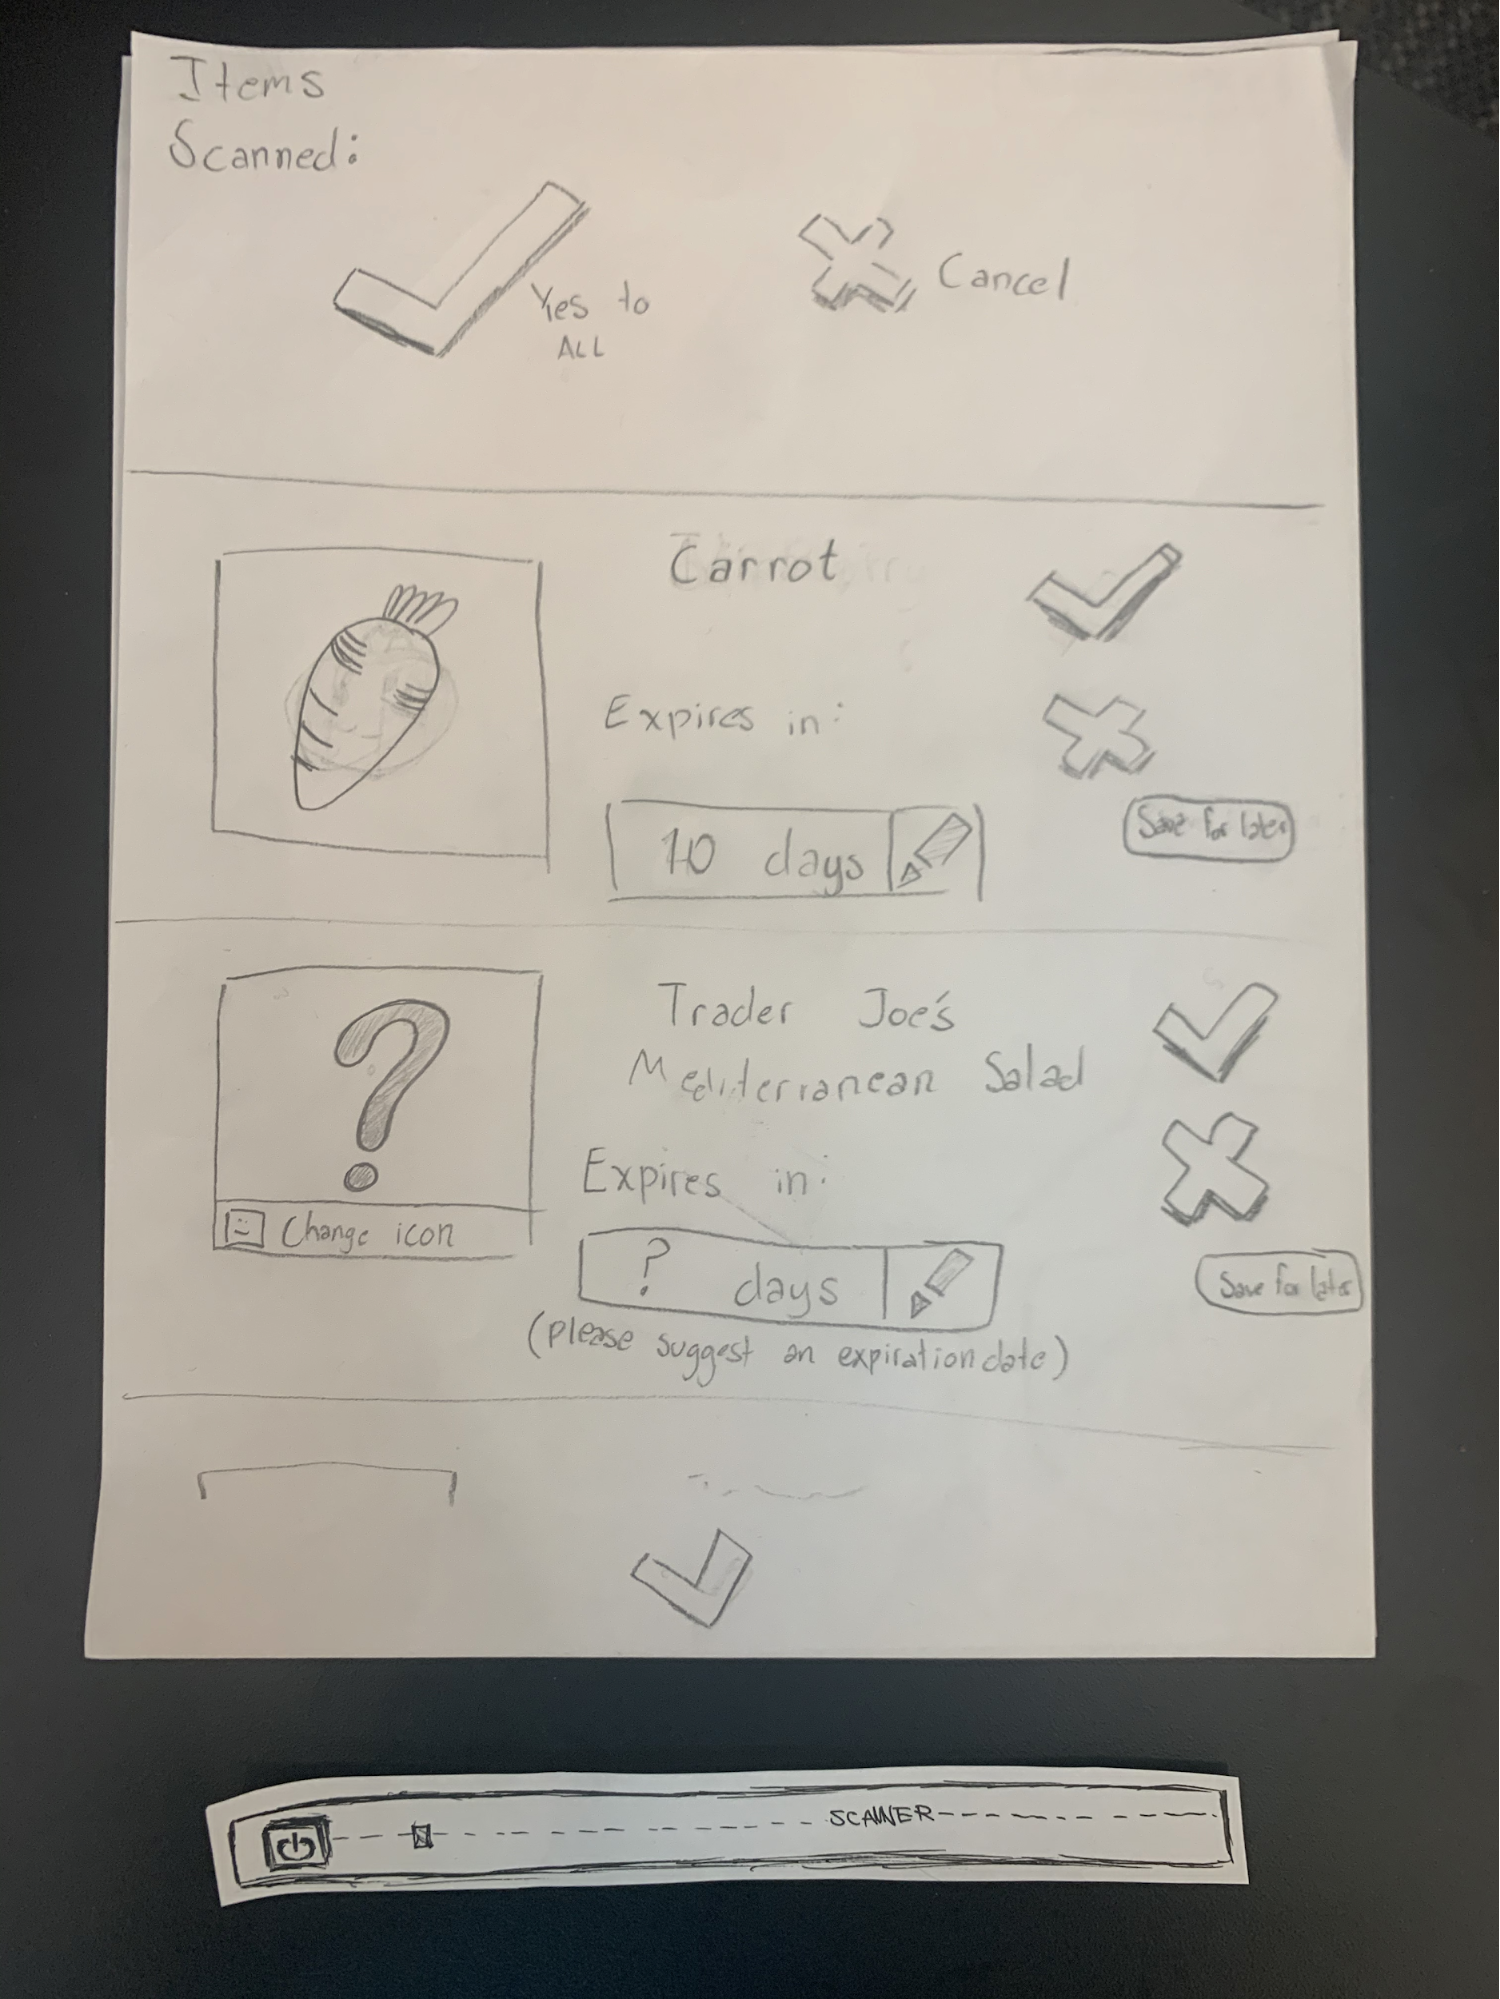 Items
Scanned:
Yes to
ALL
Cancel
Carrot
Expires in:
10 days
Save for later
Trader Joe's
Mediterranean Salad
Expires in:
? days
(please suggest an expiration date)
Change icon
Save for later
SCANNER